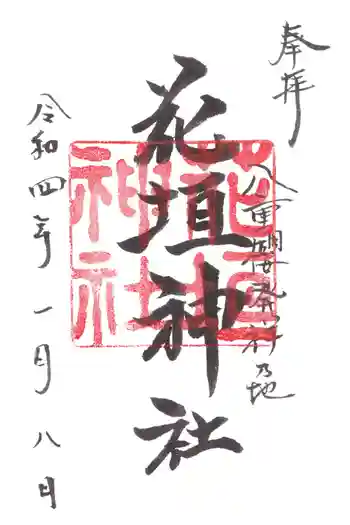 奉拝
八重櫻発祥乃地
花垣神社
花垣
神社
令和四年一月八日